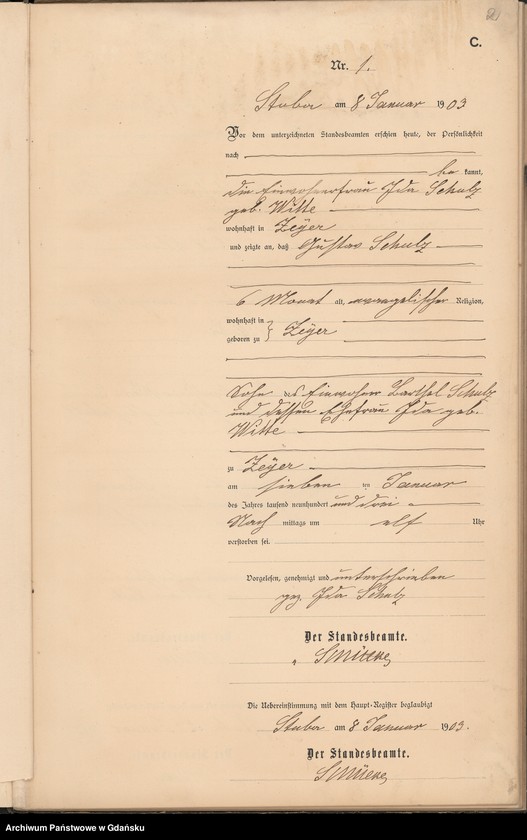 C.
Nr. 1.
Stuba am 8 Januar 1903
Vor dem unterzeichneten Standesbeamten erschien heute, der Persönlichkeit
nach
be kannt,
die Einwohnerfrau Ida Schulz
geb. Witte
wohnhaft in Zeyer
und zeigte an, daß Gustav Schulz
6 Monat alt, evangelischer Religion,
wohnhaft in
geboren zu } Zeyer
Sohn des Einwohner Barthel Schulz
und dessen Ehefrau Ida geb.
Witte
zu Zeyer
am sieben ten Januar
des Jahres tausend neunhundert und drei
Nach mittags um elf Uhr
verstorben sei.
Vorgelesen, genehmigt und unterschrieben
gez. Ida Schulz
Der Standesbeamte.
Die Uebereinstimmung mit dem Haupt-Register beglaubigt
Stuba am 8 Januar 1903.
Der Standesbeamte.
Archiwum Państwowe w Gdańsku